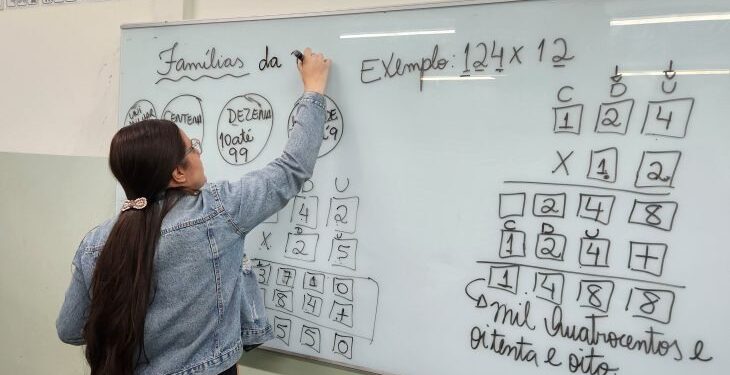 Famílias da
Exemplo: 124 x 12
CENTENA
DEZENA
10 até
99
D U
4 2
x 2 5
1 0
8 4 +
5 0
C D U
1 2 4
x 1 2
2 4 8
C D U
1 2 4 +
1 4 8 8
mil quatrocentos e
oitenta e oito.